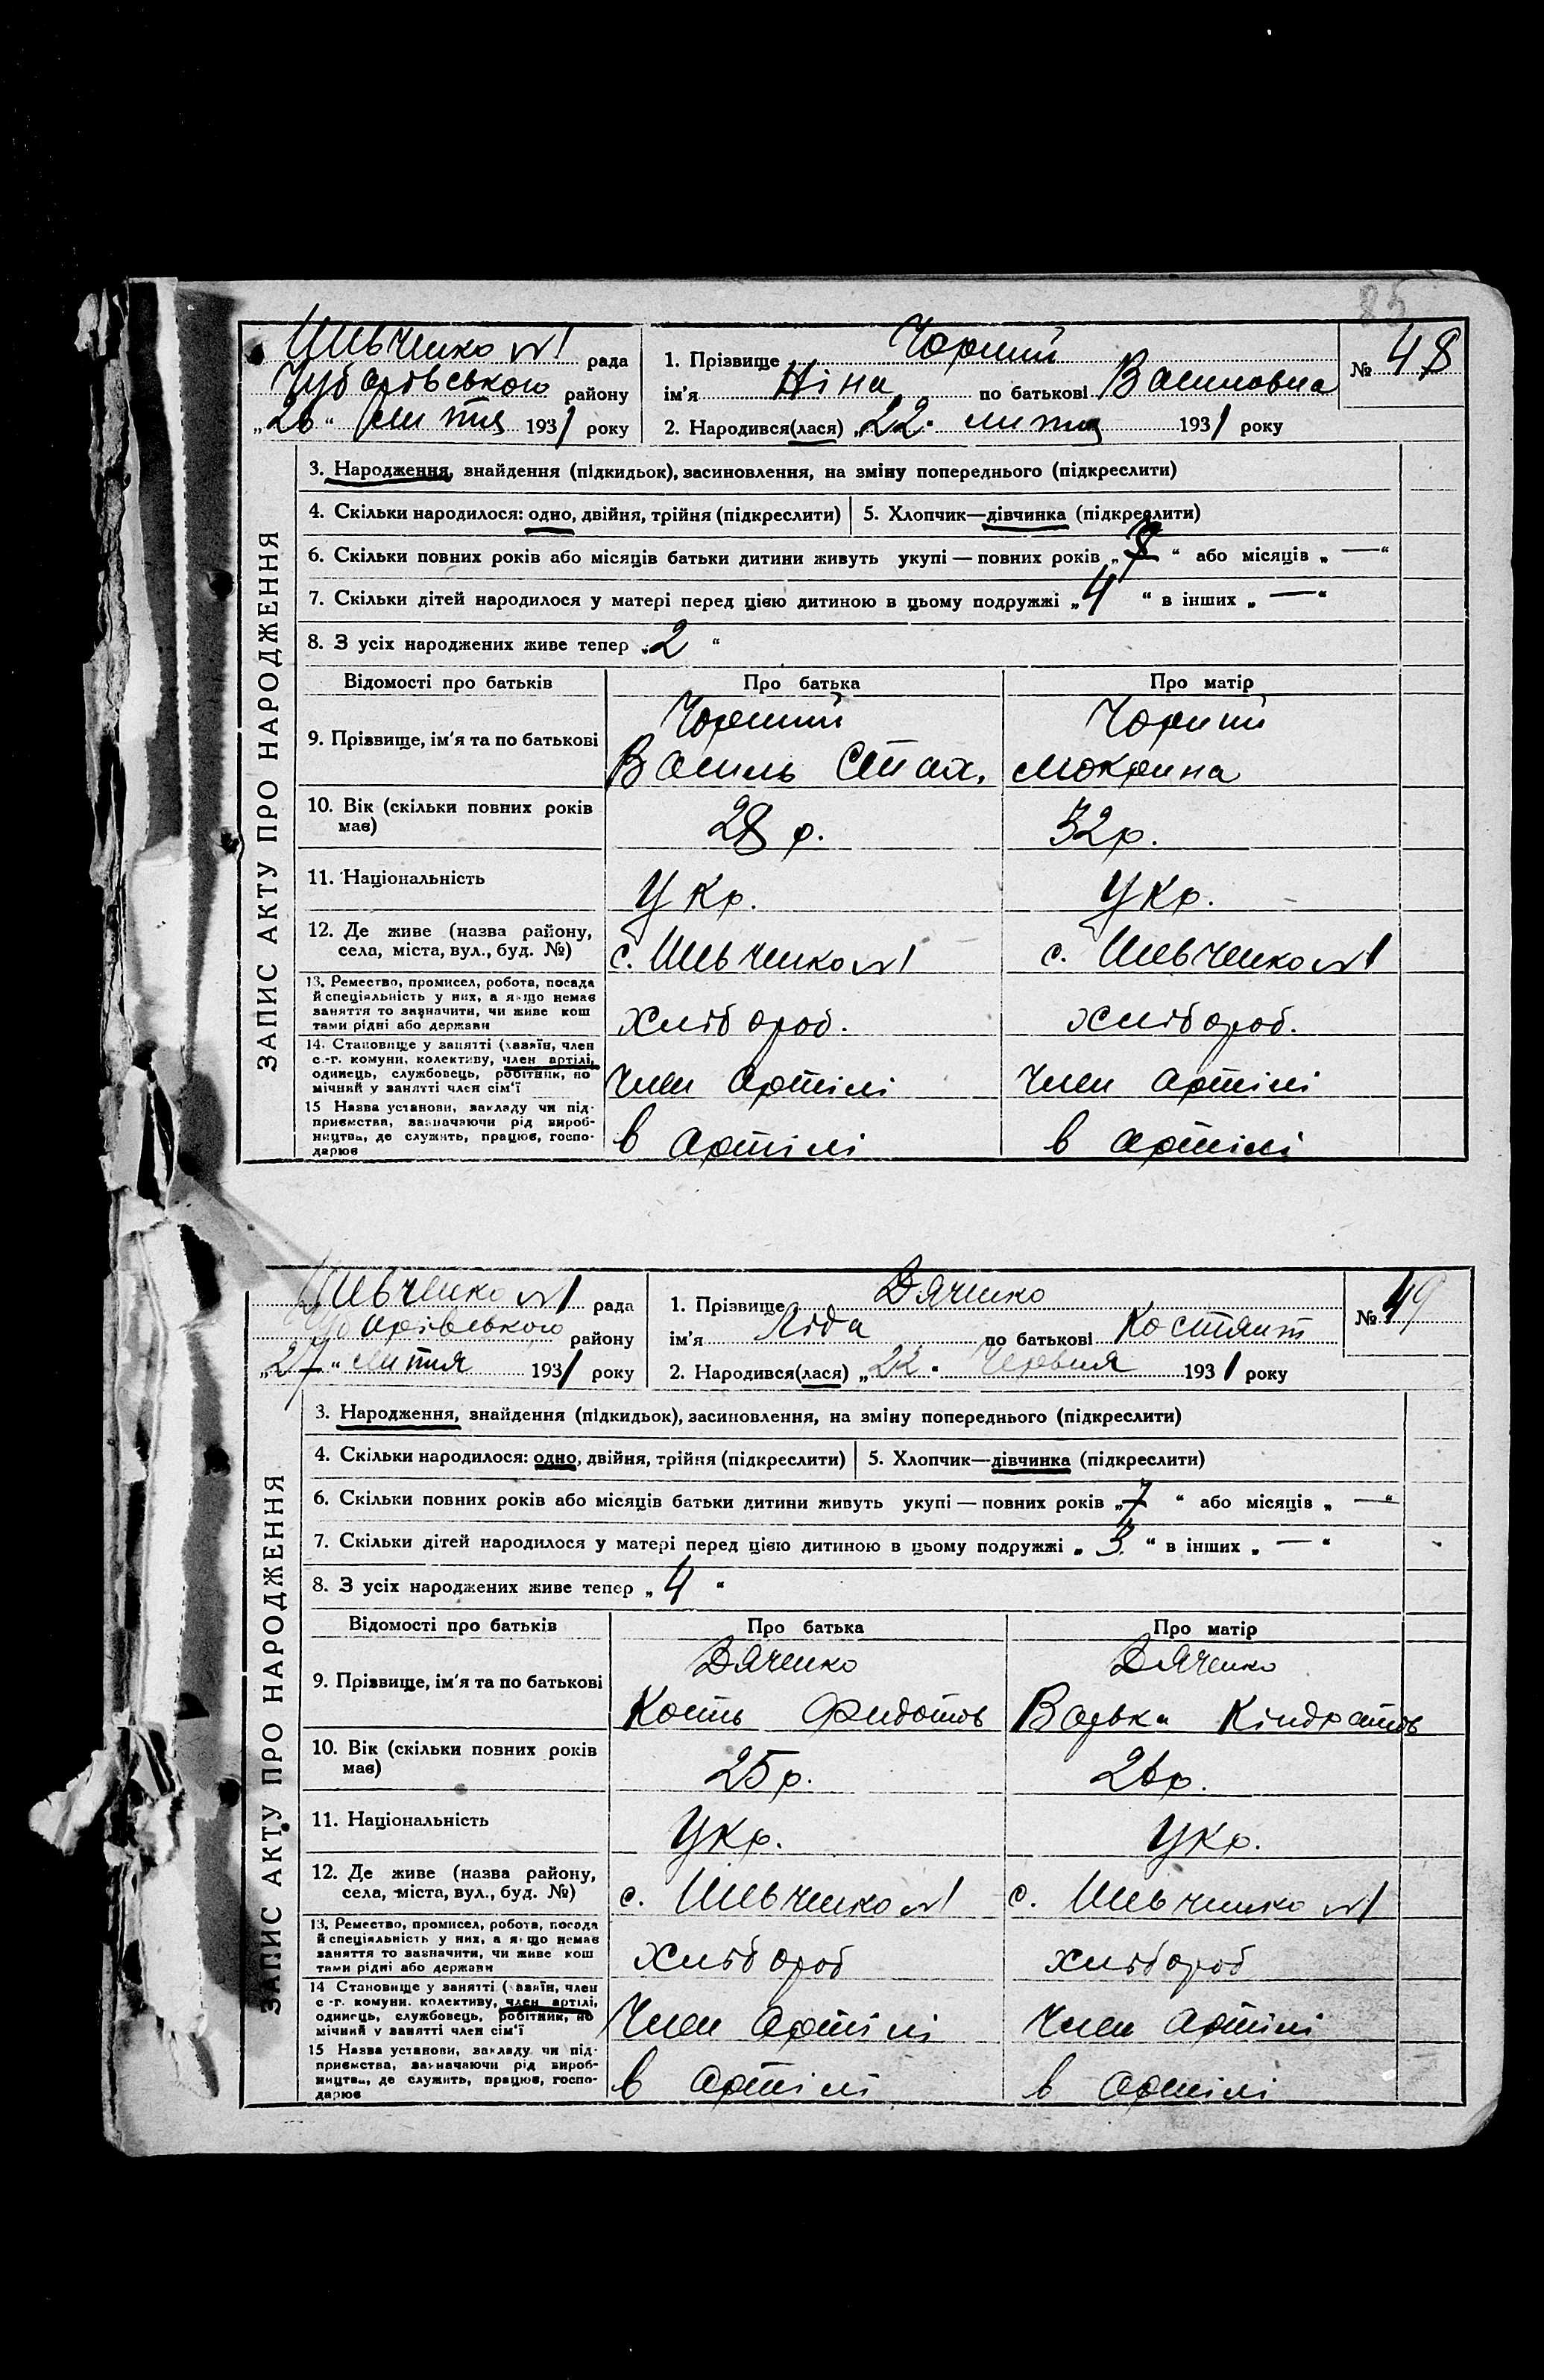 85
Шевченко №1 рада
Чубарівського району
„26“ липня 1931 року
1. Прізвище Чорний
ім'я Ніна по батькові Василовна
2. Народився(лася) „22“ липня 1931 року
№ 48
ЗАПИС АКТУ ПРО НАРОДЖЕННЯ
3. Народження, знайдення (підкидьок), засиновлення, на зміну попереднього (підкреслити)
4. Скільки народилося: одно, двійня, трійня (підкреслити) 5. Хлопчик—дівчинка (підкреслити)
6. Скільки повних років або місяців батьки дитини живуть укупі — повних років „8“ або місяців „—“
7. Скільки дітей народилося у матері перед цією дитиною в цьому подружжі „4“ в інших „—“
8. З усіх народжених живе тепер „2“
Відомості про батьків Про батька Про матір
9. Прізвище, ім'я та по батькові
Чорний Чорний
Василь Мокрина
10. Вік (скільки повних років
має) 28 р. 32 р.
11. Національність Укр. Укр.
12. Де живе (назва району,
села, міста, вул., буд. №) с. Шевченко №1 с. Шевченко №1
13. Ремество, промисел, робота, посада
й спеціяльність у них, а якщо немає
заняття то зазначити, чи живе кош
тами рідні або держави
хлібороб. хлібороб.
14. Становище у занятті (хазяїн, член
с.-г. комуни, колективу, член артілі,
одинець, службовець, робітник, по
мічний у занятті член сім'ї
член артілі член артілі
15 Назва установи, закладу чи під-
приємства, зазначаючи рід вироб-
ництва, де служить, працює, госпо-
дарює
в артілі в артілі
Шевченко №1 рада
Чубарівського району
„27“ липня 1931 року
1. Прізвище Дяченко
ім'я Ліда по батькові Костянт
2. Народився(лася) „22“ червня 1931 року
№ 49
ЗАПИС АКТУ ПРО НАРОДЖЕННЯ
3. Народження, знайдення (підкидьок), засиновлення, на зміну попереднього (підкреслити)
4. Скільки народилося: одно, двійня, трійня (підкреслити) 5. Хлопчик—дівчинка (підкреслити)
6. Скільки повних років або місяців батьки дитини живуть укупі — повних років „7“ або місяців „—“
7. Скільки дітей народилося у матері перед цією дитиною в цьому подружжі „3“ в інших „—“
8. З усіх народжених живе тепер „4“
Відомості про батьків Про батька Про матір
9. Прізвище, ім'я та по батькові
Дяченко Дяченко
Кость Федотов Варька Кіндратов
10. Вік (скільки повних років
має) 25 р. 26 р.
11. Національність Укр. Укр.
12. Де живе (назва району,
села, міста, вул., буд. №) с. Шевченко №1 с. Шевченко №1
13. Ремество, промисел, робота, посада
й спеціяльність у них, а якщо немає
заняття то зазначити, чи живе кош
тами рідні або держави
хлібороб хлібороб
14 Становище у занятті (хазяїн, член
с.-г. комуни, колективу, член артілі,
одинець, службовець, робітник, по
мічний у занятті член сім'ї
член артілі член артілі
15 Назва установи, закладу чи під-
приємства, зазначаючи рід вироб-
ництва, де служить, працює, госпо-
дарює
в артілі в артілі